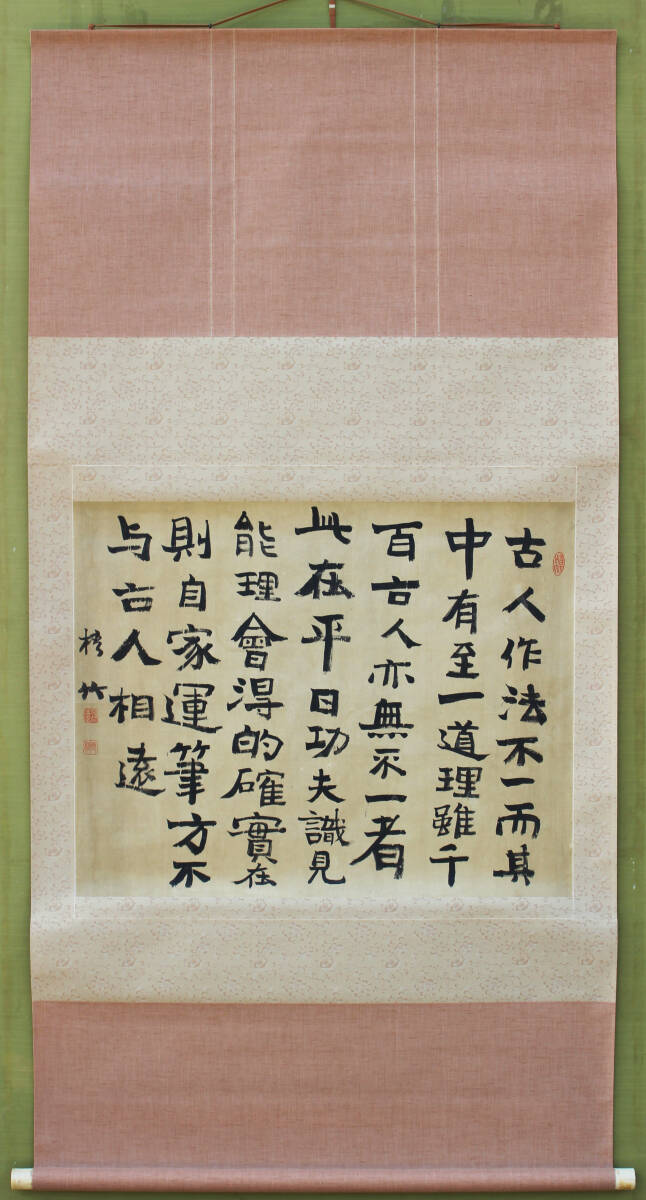 古人作法不一而其
中有至一道理雖千
百古人亦無不一者
此在平日功夫識見
能理會得的確實在
則自家運筆方不
与古人相遠
梧竹